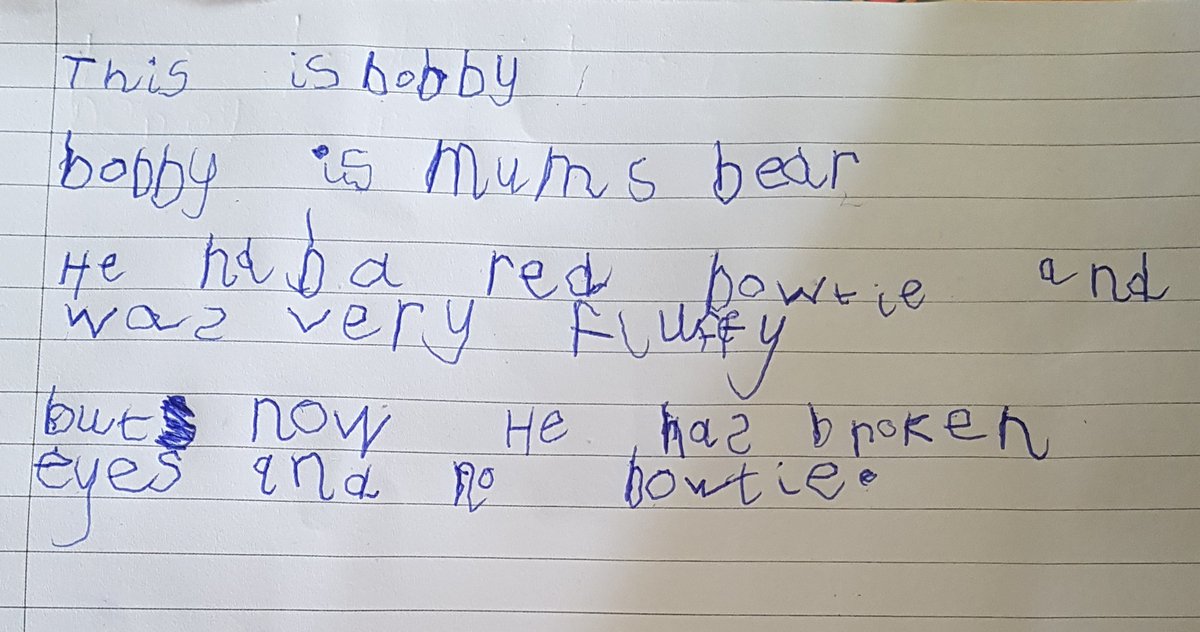 This is bobby
bobby is Mums bear
He had a red bowtie and
was very fluffy
but now He has broken
eyes and no bowtie.